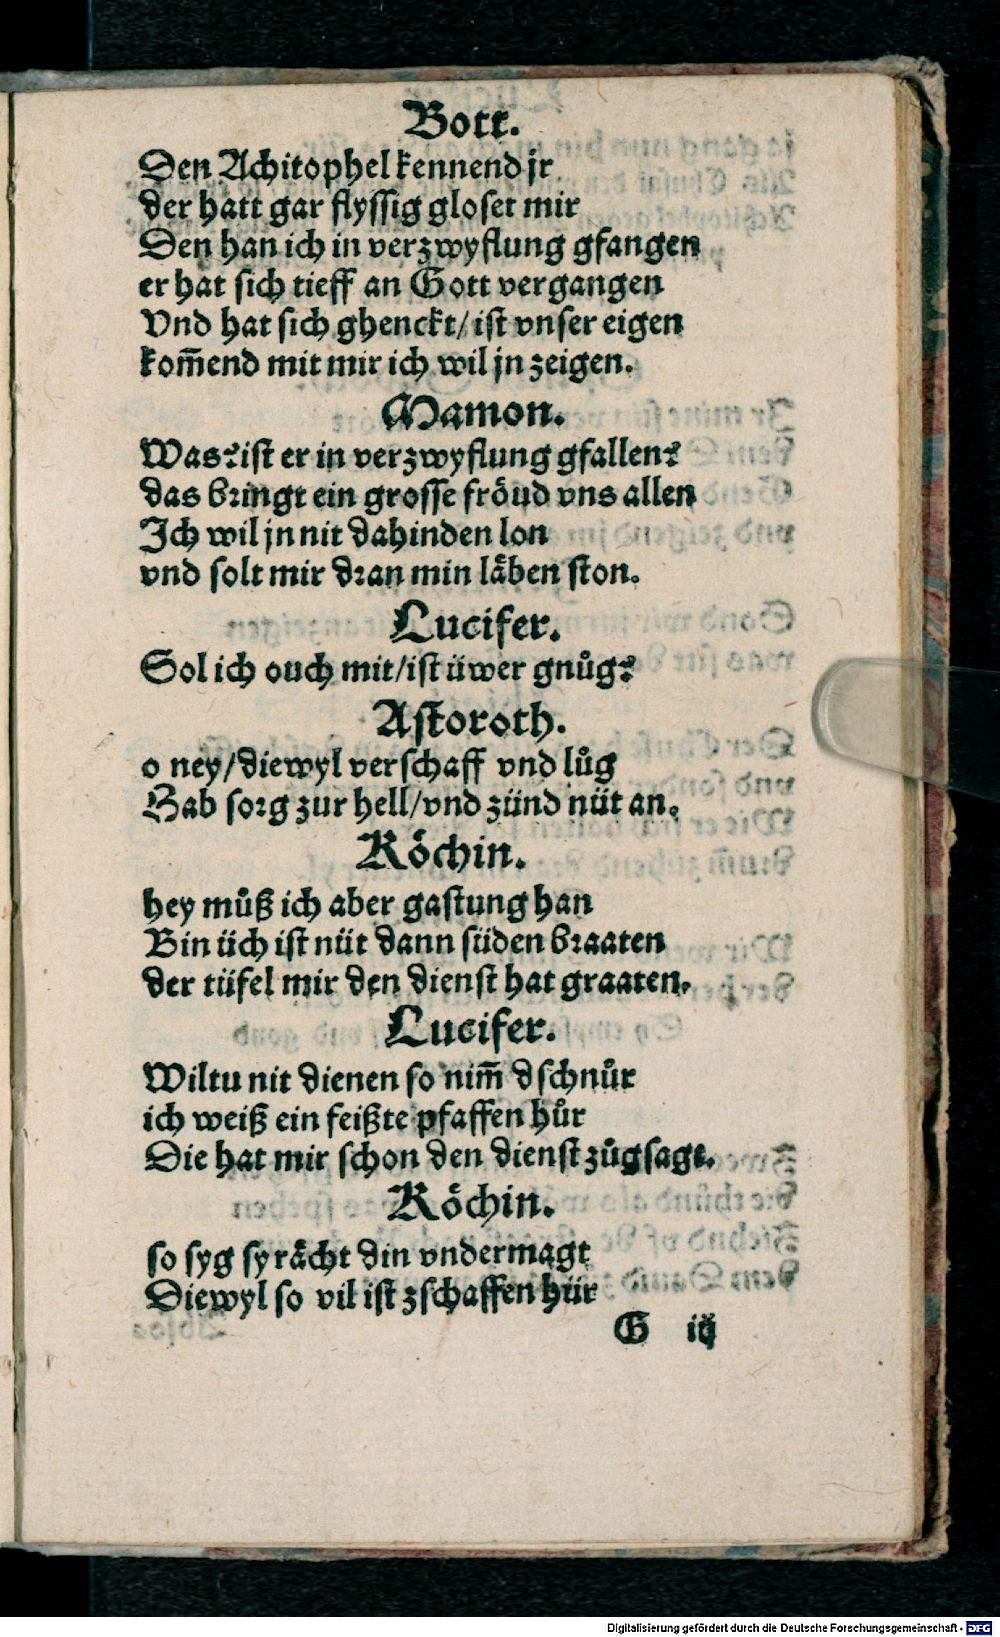 Bott.
Den Achitophel kennend jr
der hatt gar flyssig gloset mir
Den han ich in verzwyflung gfangen
er hat sich tieff an Gott vergangen
Vnd hat sich ghenckt/ ist vnser eigen
kom̄end mit mir ich wil jn zeigen.
Mamon.
Was? ist er in verzwyflung gfallen?
das bringt ein grosse fröud vns allen
Ich wil jn nit dahinden lon
vnd solt mir dran min läben ston.
Lucifer.
Sol ich ouch mit/ ist üwer gnůg?
Astoroth.
o ney/ diewyl verschaff vnd lůg
Hab sorg zur hell/ vnd zünd nüt an.
Köchin.
hey můß ich aber gastung han
Bin üch ist nüt dann süden braaten
der tüfel mir den dienst hat graaten.
Lucifer.
Wiltu nit dienen so nim̄ dschnůr
ich weiß ein feißte pfaffen hůr
Die hat mir schon den dienst zůgsagt.
Köchin.
so syg sy rächt din vndermagt
Diewyl so vil ist zschaffen hür
G iij
Digitalisierung gefördert durch die Deutsche Forschungsgemeinschaft - DFG